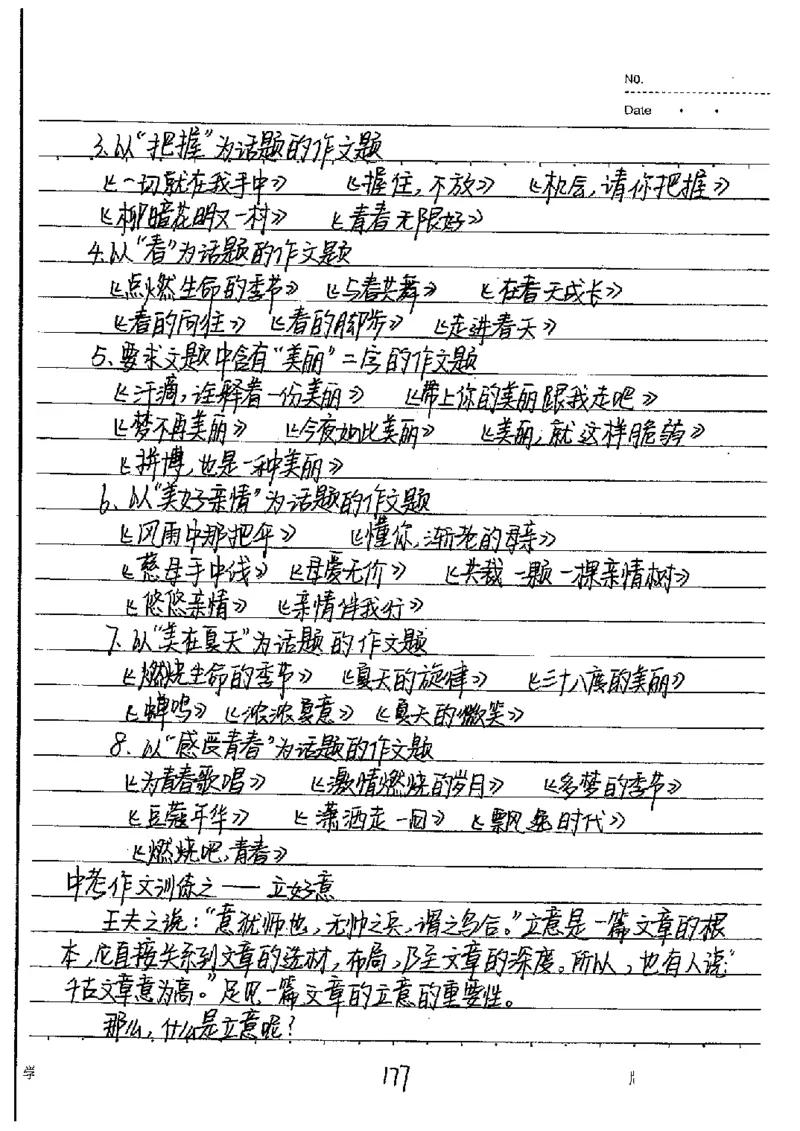 No.
Date
3.以“把握”为话题的作文题
《一切就在我手中》 《握住,不放》 《机会,请你把握》
《柳暗花明又一村》 《青春无限好》
4.以“春”为话题的作文题
《点燃生命的季节》 《与春共舞》 《在春天成长》
《春的向往》 《春的脚步》 《走进春天》
5、要求文题中含有“美丽”二字的作文题
《汗滴,诠释着一份美丽》 《带上你的美丽跟我走吧》
《梦不再美丽》 《今夜如此美丽》 《美丽,就这样脆弱》
《拼博,也是一种美丽》
6、以“美好亲情”为话题的作文题
《风雨中那把伞》 《懂你,渐老的母亲》
《慈母手中线》 《母爱无价》 《共栽一颗一棵亲情树》
《悠悠亲情》 《亲情伴我行》
7.以“美在夏天”为话题的作文题
《燃烧生命的季节》 《夏天的旋律》 《三十八度的美丽》
《蝉鸣》 《浓浓夏意》 《夏天的微笑》
8.以“感受青春”为话题的作文题
《为青春歌唱》 《激情燃烧的岁月》 《多梦的季节》
《豆蔻年华》 《潇洒走一回》 《飘逸时代》
《燃烧吧,青春》
中考作文训练之——立好意
王夫之说:“意犹师也,无帅之兵,谓之乌合。”立意是一篇文章的根
本,应直接关系到文章的选材,布局,乃至文章的深度。所以,也有人说“
千古文章意为高。”足见一篇文章的立意的重要性。
那么,什么是立意呢?
学 177